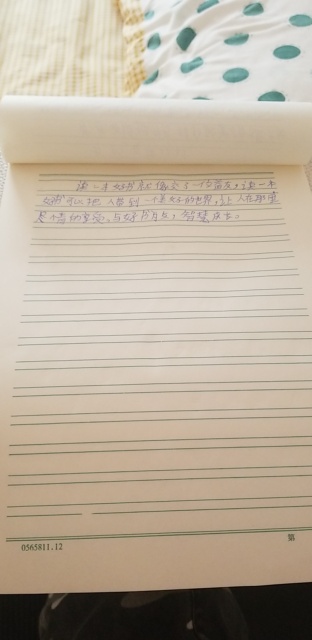 读一本好书就像交了一位益友,读一本
好书可以把人带到一个美好的世界,让人在那里
尽情的享受。与好书为友,智慧
0565811.12
第